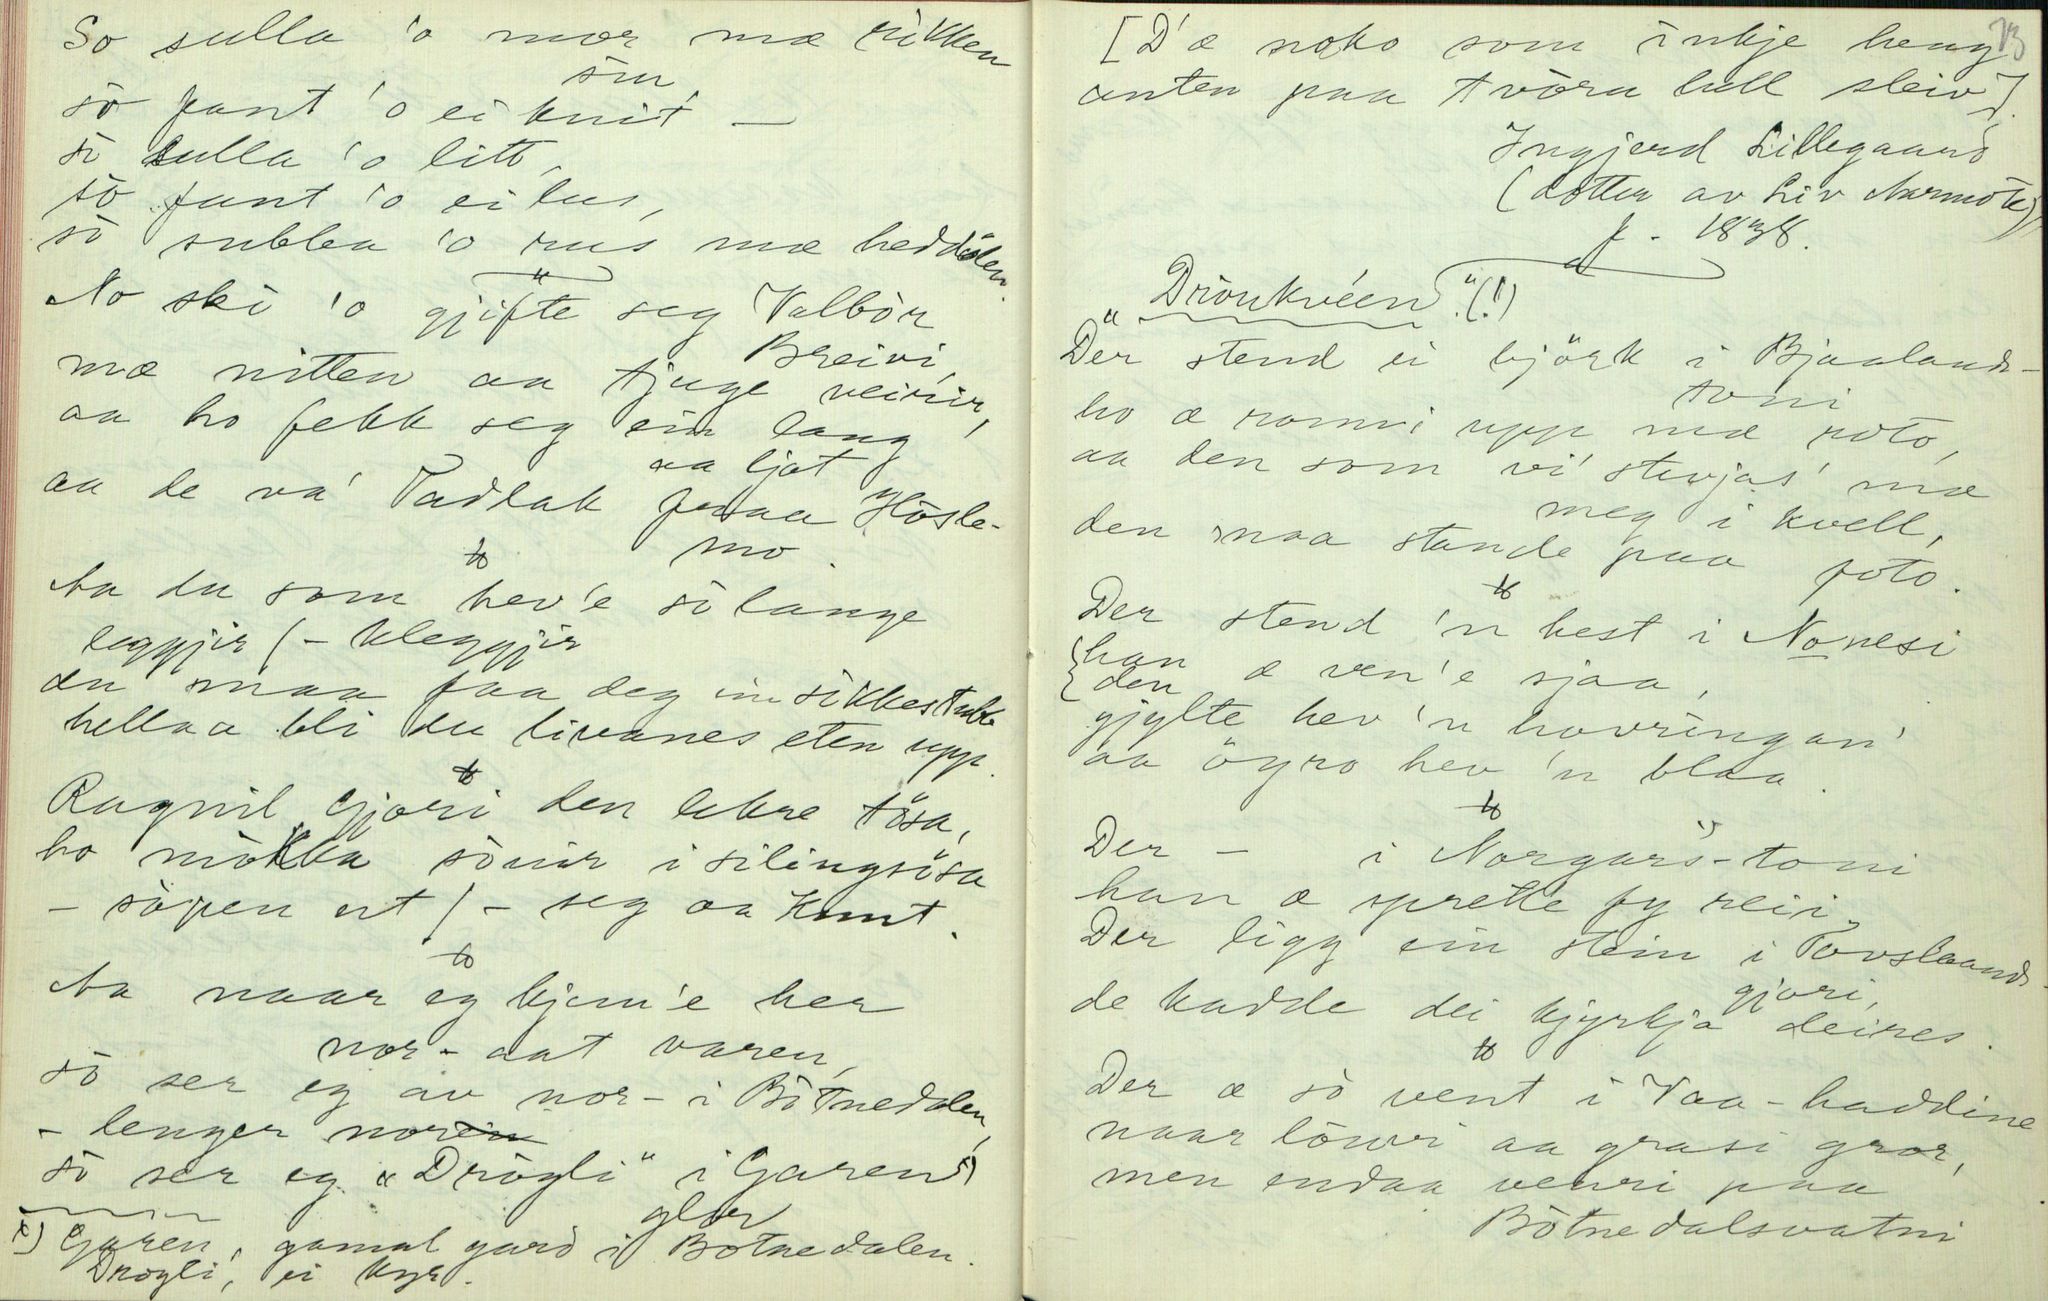 So sulla 'o mor mæ rikken
sin
sò fant 'o ei knit –
sò sulla 'o litt,
sò fant 'o ei lus,
sò subba 'o rus mæ heddölen.
"
No ski 'o gjifte seg Valbòr
Breivi,
mæ nitten aa tjuge veirir,
aa ho fekk seg ein lang
aa ljot
aa de va' Tadlak paa Hösle-
mo.
Aa du som hev'e sò lange
leggjir / – kleggjir
du maa faa deg ein sikkestubb
hellaa bli du livanes eten upp.
Ragnil Gjori den lekre tösa,
ho mòkka sòuir i silingsösa
– sòpen ut / – seg aa Knut.
Aa naar eg kjem'e her
nor-aat varen,
sò ser eg av nor- i Bòtnedalen,
– lenger nor
sò ser eg "Drögli" i Garen x)
x) Garen, gamal gard i Botnedalen.
glor
Drögli, ei kyr.
73
[D'æ noko som inkje heng
anten paa tvöru hell sleiv].
Ingjerd Lillegaard
(dotter av Liv Aarmòte)
f. 1838.
"Dròukvéen" (!)
Der stend ei björk i Bjaalands-
toni
ho æ ronni upp mæ roto,
aa den som vi' stevjas' mæ
meg i kvell,
den maa stande paa foto.
Der stend 'n hest i Nonesi
han
den æ ven'e sjaa,
gjylte hev 'n hovringan'
aa ögro hev 'n blaa.
Der – i Norgars-toni
han æ sprette fy reii.
Der ligg ein stein i Tovslaands-
gjori,
de kadde dei kjyrkja deires.
Der æ sò vent i Vaa-haddine
naar löuvi aa grasi gror,
men endaa venri paa
Bòtnedalsvatni